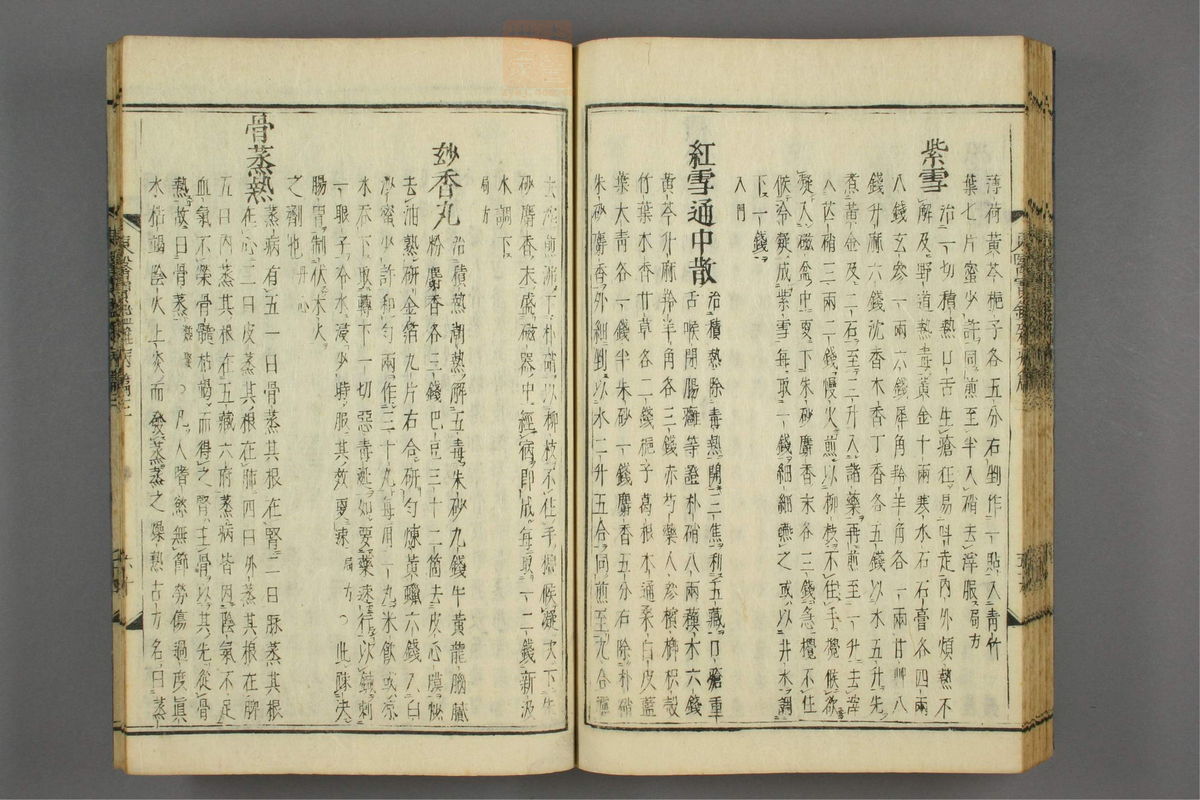 薄荷黃芩梔子各五分右剉作一貼入青竹
葉七片蜜少許同煎至半入硝去滓服局方
紫雪
治一切積熱口舌生瘡狂易叫走內外煩熱不
解及野道熱毒黃金十兩寒水石石膏各四兩
八錢玄參一兩六錢犀角羚羊角各一兩甘艸八
錢升麻六錢沈香木香丁香各五錢以水五升先
煮黃金及二石至三升入諸藥再煎至一升去滓
入芒硝三兩二錢慢火煎以柳枝不住手攪候欲
凝入磁盆中更下朱砂麝香末各三錢急攪不住
候冷凝成紫雪每取一錢細細嚥之或以井水調
下一錢
入門
紅雪通中散
治積熱除毒熱開三焦利五藏口瘡重
舌喉閉腸癰等證朴硝八兩蘇木六錢
黃芩升麻羚羊角各三錢赤芍藥人參檳榔枳殼
竹葉木香甘草各二錢梔子葛根木通桑白皮藍
葉大青各一錢半朱砂一錢麝香五分右除朴硝
朱砂麝香外細剉以水二升五合同煎至九合濾
去滓煎沸下朴硝以柳枝不住手攪候凝次下朱
砂麝香末盛磁器中經宿即成每取一二錢新汲
水調下
局方
妙香丸
治積熱潮熱解五毒朱砂九錢牛黃龍腦膩
粉麝香各三錢巴豆三十二箇去皮心膜
去油熟研金箔九片右合研勻煉黃蠟六錢入白
沙蜜少許和勻兩作三十丸每用一丸米飲或涼
水吞下取轉下一切惡毒涎如要藥速行以鍼刺
一眼子冷水浸少時服其效更速局方○此降火
腸胃制伏木火
之劑也丹心
骨蒸熱
蒸病有五一曰骨蒸其根在腎二曰脈蒸其根
在心三曰皮蒸其根在肺四曰外蒸其根在脾
五曰內蒸其根在五藏六府蒸病皆因陰氣不足
血氣不榮骨髓枯竭而得之腎主骨以其先從骨
熱故曰骨蒸○凡人嗜慾無節勞傷過度眞
水枯竭陰火上炎而發蒸蒸之燥熱古方名曰蒸